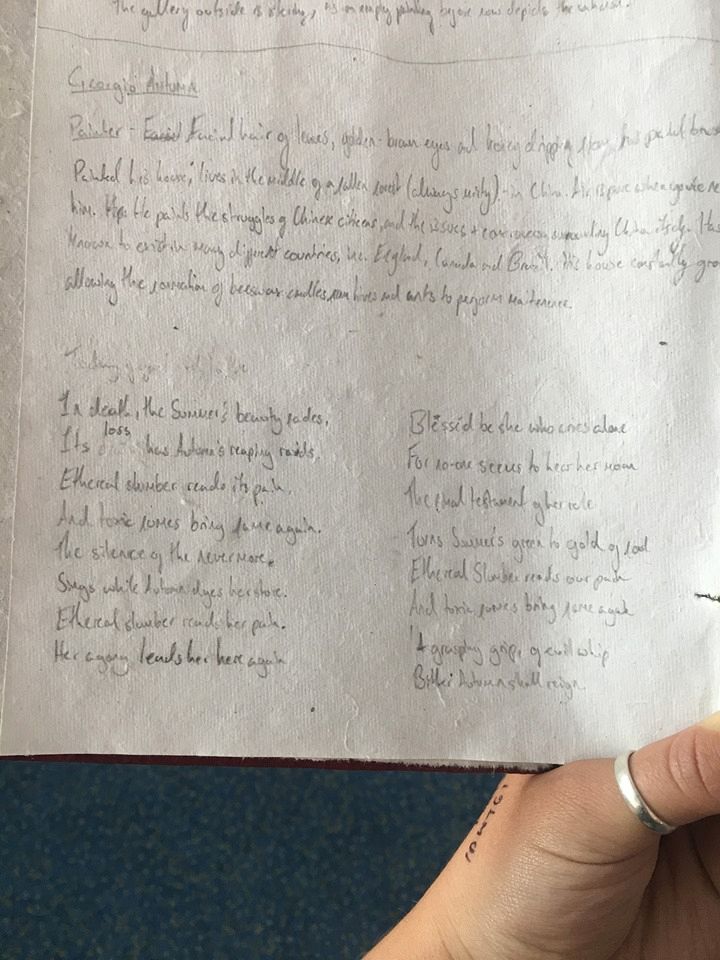 The gallery outside is
Georgio Autumn
Painter - Facial Facial hair of leaves, golden-brown eyes and honey dripping from his
Painted his house, lives in the middle of a fallen forest (always misty) - in China. Air is pure when you're
him. He paints the struggles of Chinese citizens, and the issues + controversy surrounding China itself. Has
known to exist in many different countries, inc. England, Canada and Brazil. His house constantly
allowing the formation of beeswax candles from hives and ants to perform maitenence.
In death, the Summer's beauty fades,
Its loss has Autumn's reaping raids.
Ethereal slumber rends its pain,
And toxic fumes bring fame again.
The silence of the nevermore,
Sings while Autumn dyes her store.
Ethereal slumber rends her pain.
Her agony leads her here again
Blessid be she who cries alone
For no-one seems to hear her moan
The final testament of her role
Turns Summer's green to gold of
Ethereal Slumber rends our pain
And toxic fumes bring fame again
A grip, of evil whip
Bitter Autumn shall reign.